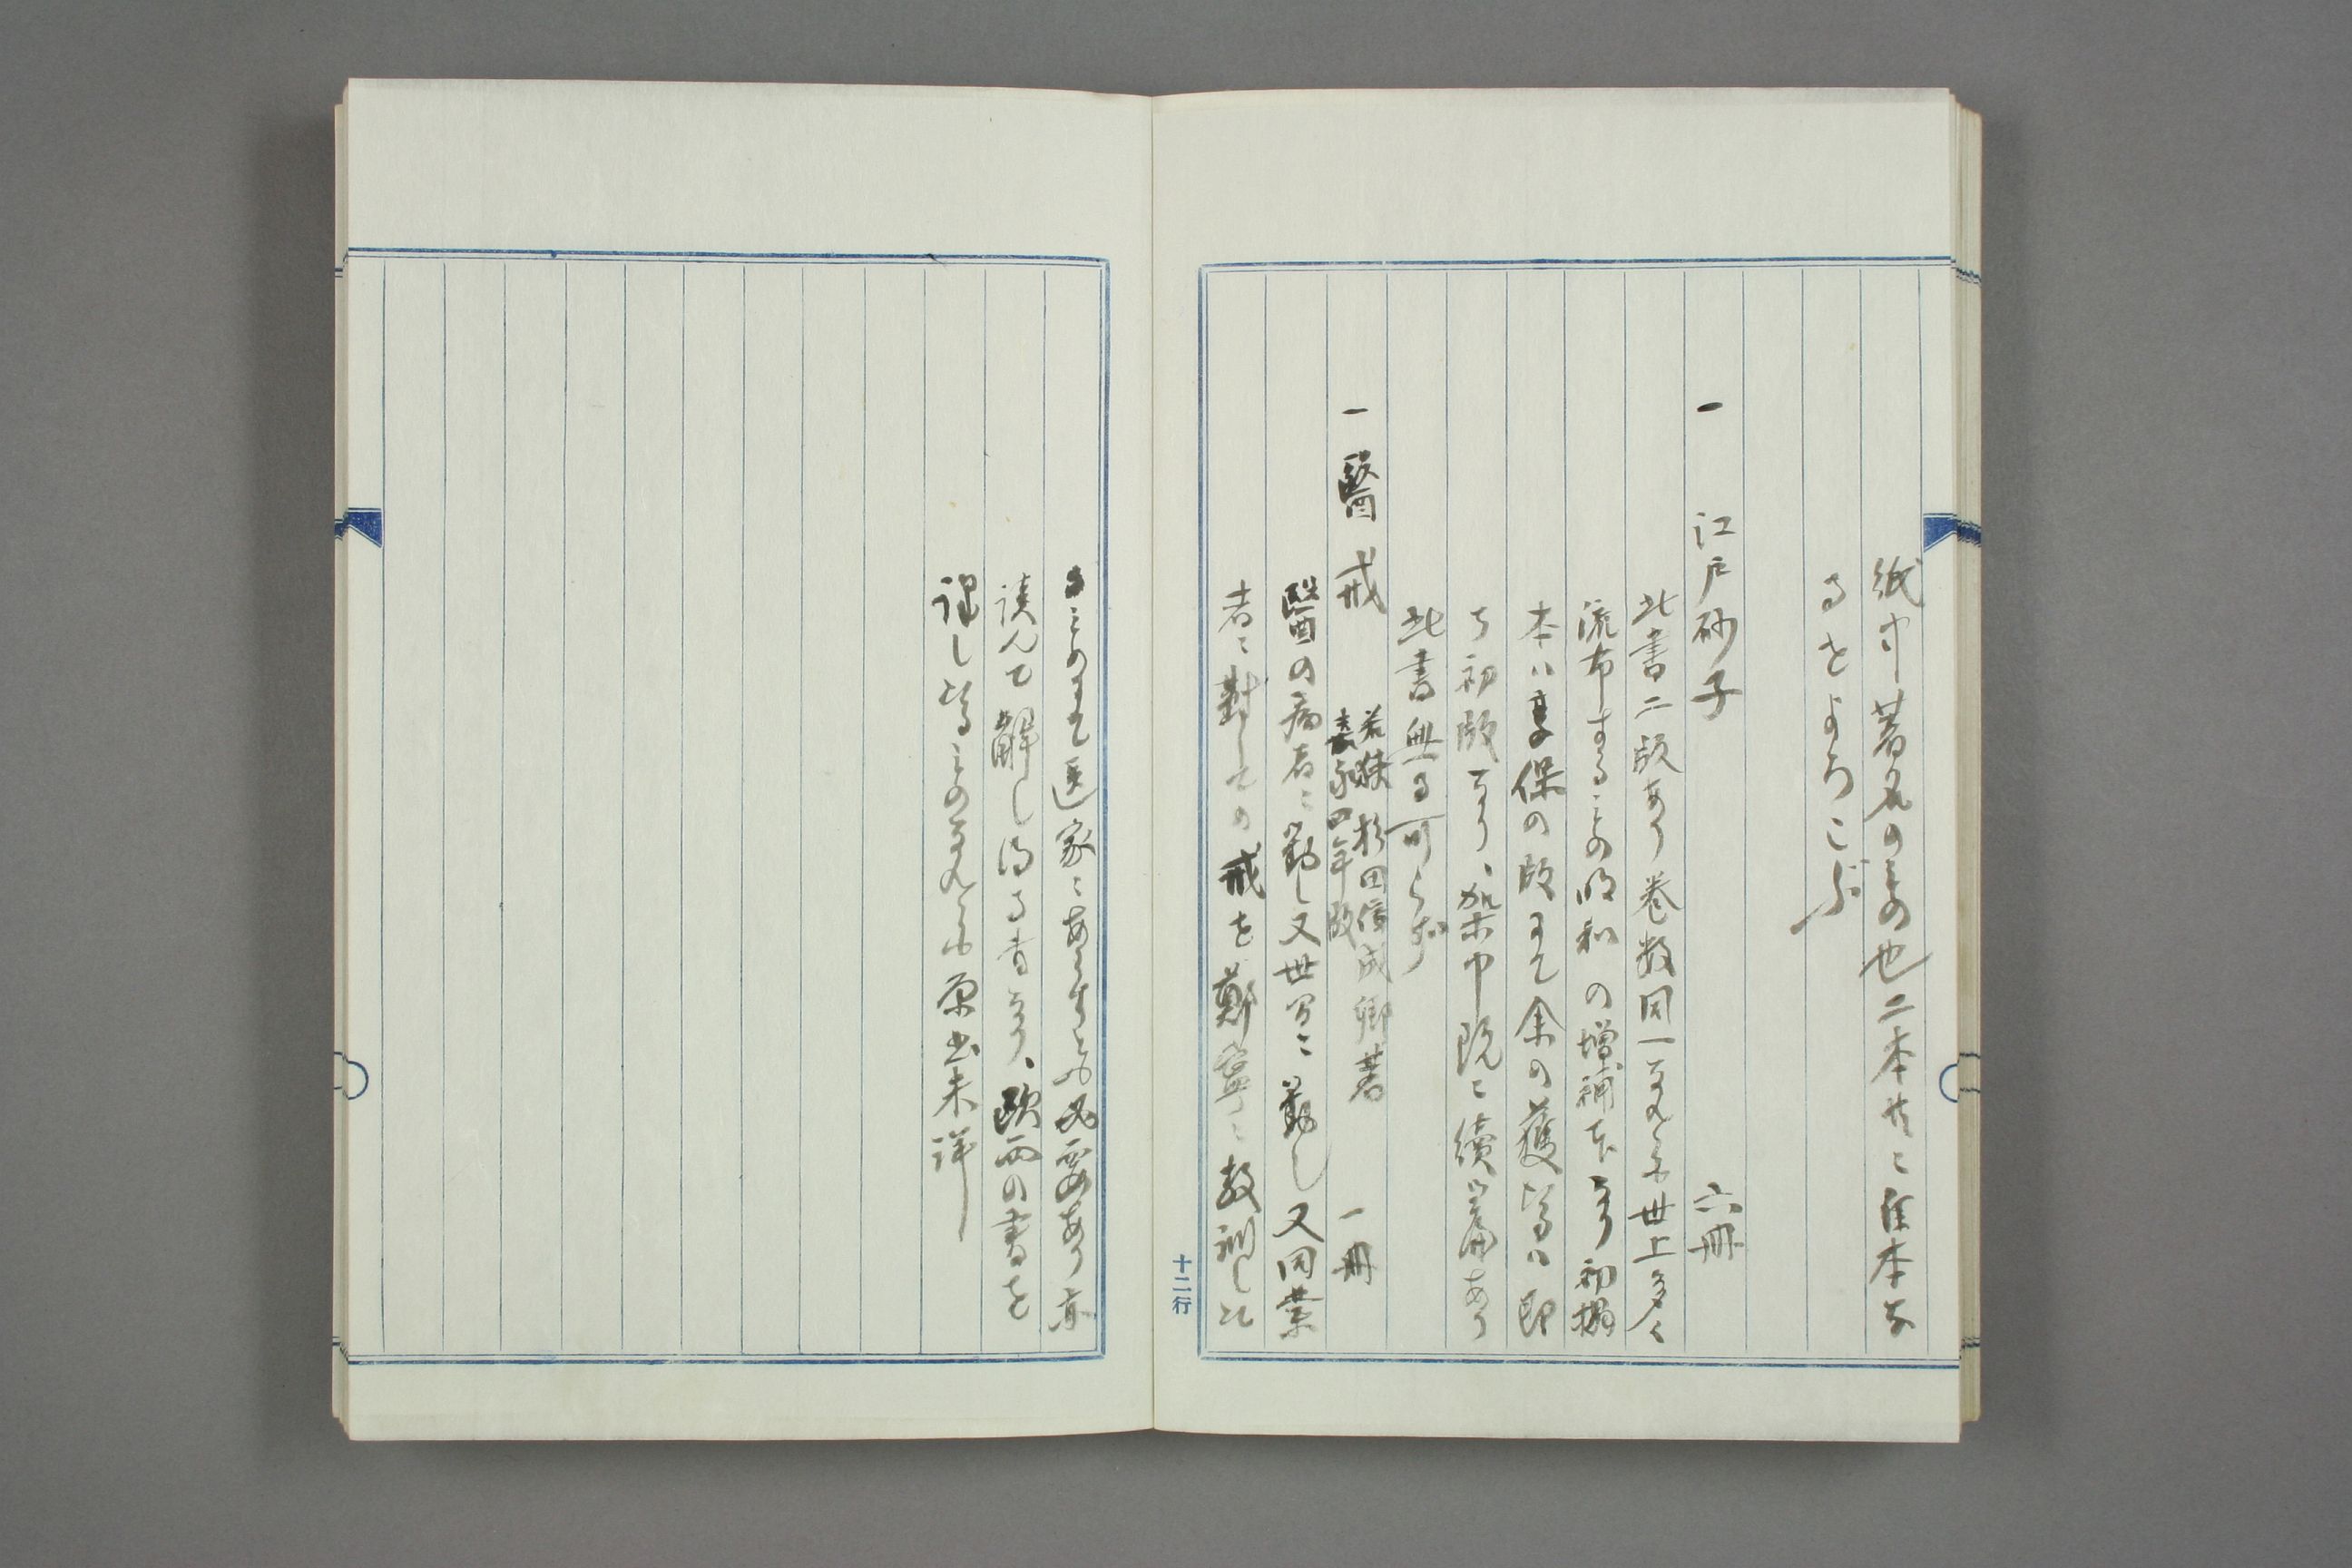 紙中著名のもの也二本共に良本な
るをよろこぶ
一 江戸砂子 六冊
此書二版あり巻数同一なれども世上多く
流布するもの明和の増補本なり初摺
本ハ享保の版にて余の獲たるハ即
ち初版なり、架中既に続篇あり
此書無る可らず
一 醫戒 杉田信成卿著 一冊
嘉永四年版
醫の病者に對し又世間に對し又同業
者に對しての戒を鄭寧に教訓した
るものにて医家にあらずとも必要あり亦
読んで解し得る書なり、欧西の書を
訳したるものなれども原出未詳
十二行